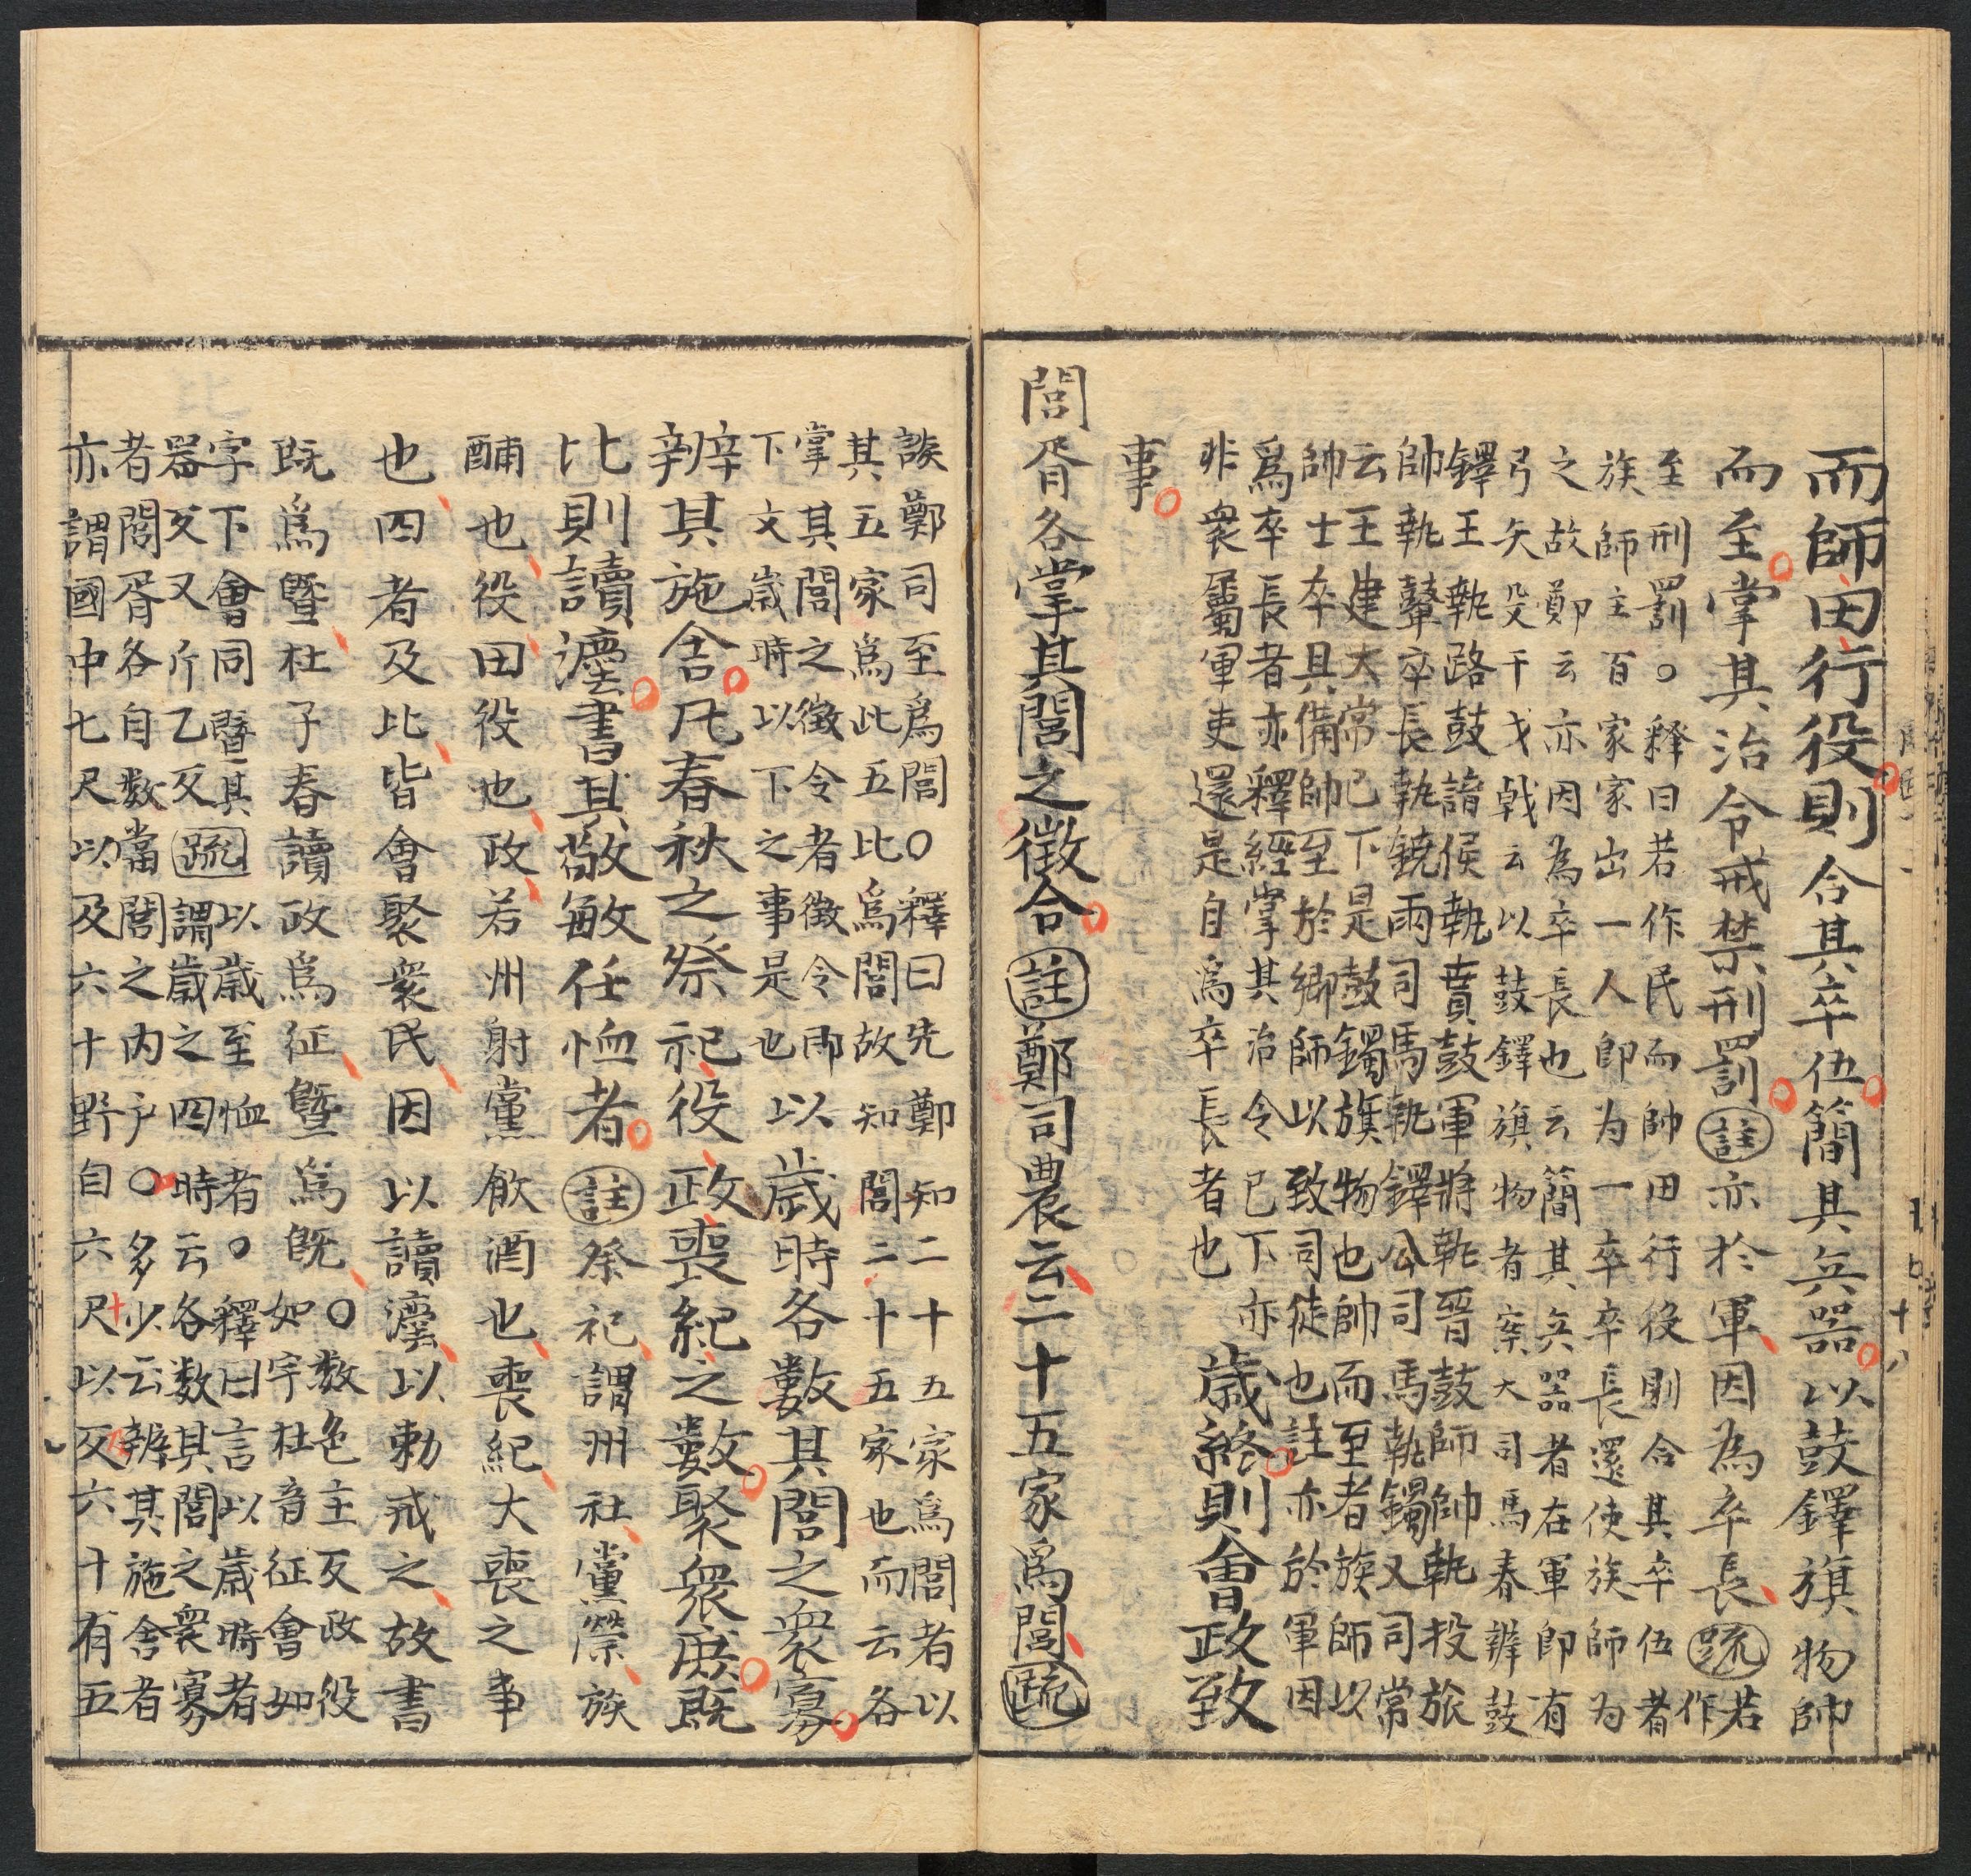 而師田行役則合其卒伍簡其兵器以鼓鐸旗物帥
而至掌其治令戒禁刑罰註亦於軍因為卒長疏若作
至刑罰○釋曰若作民而帥田行役則合其卒伍者
族師主百家家出一人即为一卒卒長還使族師为
之故鄭云亦因為卒長也云簡其兵器者在軍即有
弓矢殳干戈戟云以鼓鐸旗物者案大司馬春辨鼓
鐸王執路鼓諸侯執賁鼓軍將執晉鼓師帥執投旅
帥執鼙卒長執鐃兩司馬執鐸公司馬執鐲又司常
云王建大常已下是鼓鐲旗物也帥而至者族師以
帥士卒具備帥至於鄉師以致司徒也註亦於軍因
爲卒長者亦釋經掌其治令已下亦
非衆屬軍吏還是自爲卒長者也
歲終則會政致
事
閭胥各掌其閭之徵令註鄭司農云二十五家爲閭疏
誤鄭司至爲閭○釋曰先鄭知二十五家爲閭者以
其五家爲比五比爲閭故知閭二十五家也而云各
掌其閭之徵令者徵令即
下文歲時以下之事是也
以歲時各數其閭之衆寡
辨其施舍凡春秋之祭祀役政喪紀之數聚衆庶既
比則讀灋書其敬敏任恤者註祭祀謂州社黨禜族
酺也役田役也政若州射黨飲酒也喪紀大喪之事
也四者及比皆會聚衆民因以讀灋以勅戒之故書
既爲曁杜子春讀政爲征曁爲旣○数色主反政役
如字杜音征會如
字下會同曁其
器反又斤乙反疏以歲至恤者○釋曰言以歲時者
謂歲之四時云各数其閭之衆寡
者閭胥各自数當閭之内户○多少云辨其施舍者
亦謂國中七尺以及六十野自六尺以及六十有五